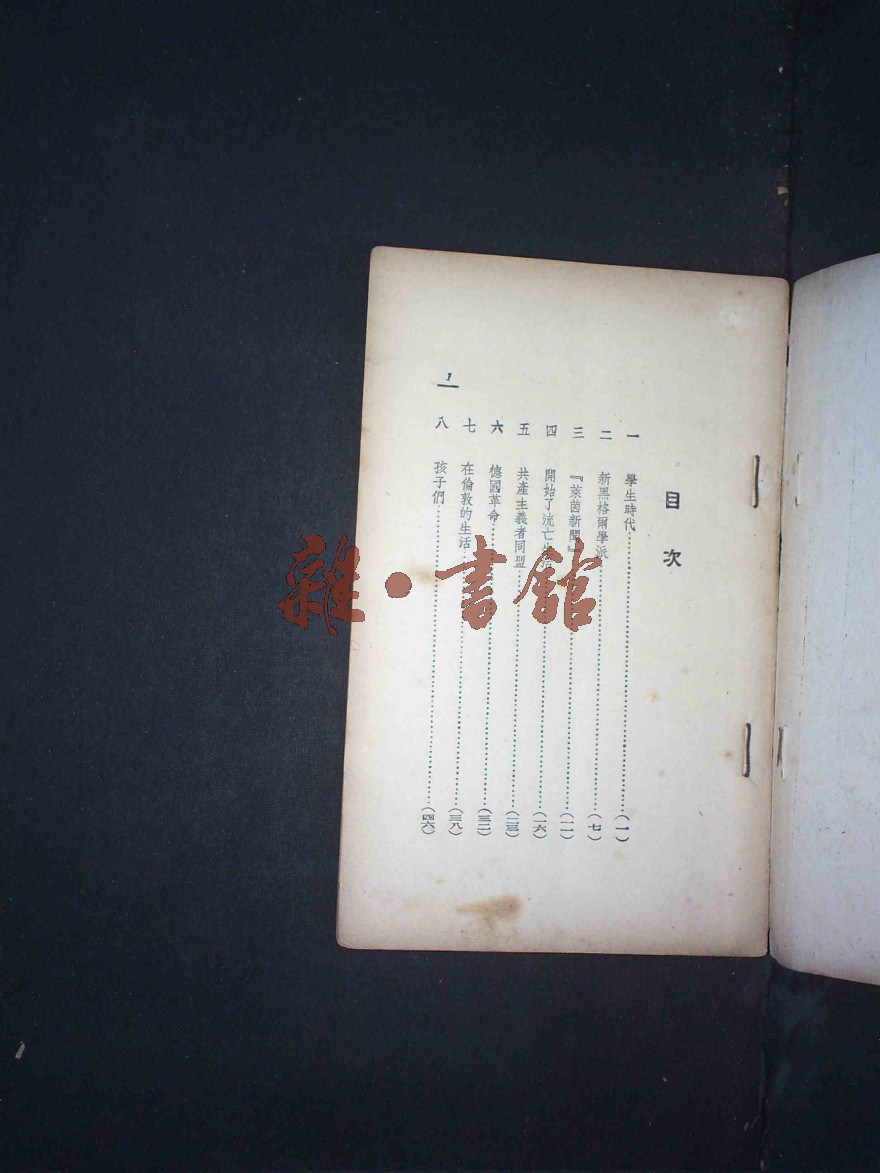 目次
一 學生時代……(一)
二 新黑格爾學派……(七)
三 『萊茵新聞』……(一一)
四 開始了流亡生……(一六)
五 共產主義者同盟……(二三)
六 德國革命……(三二)
七 在倫敦的生活……(三八)
八 孩子們……(四六)
1
雜·書館